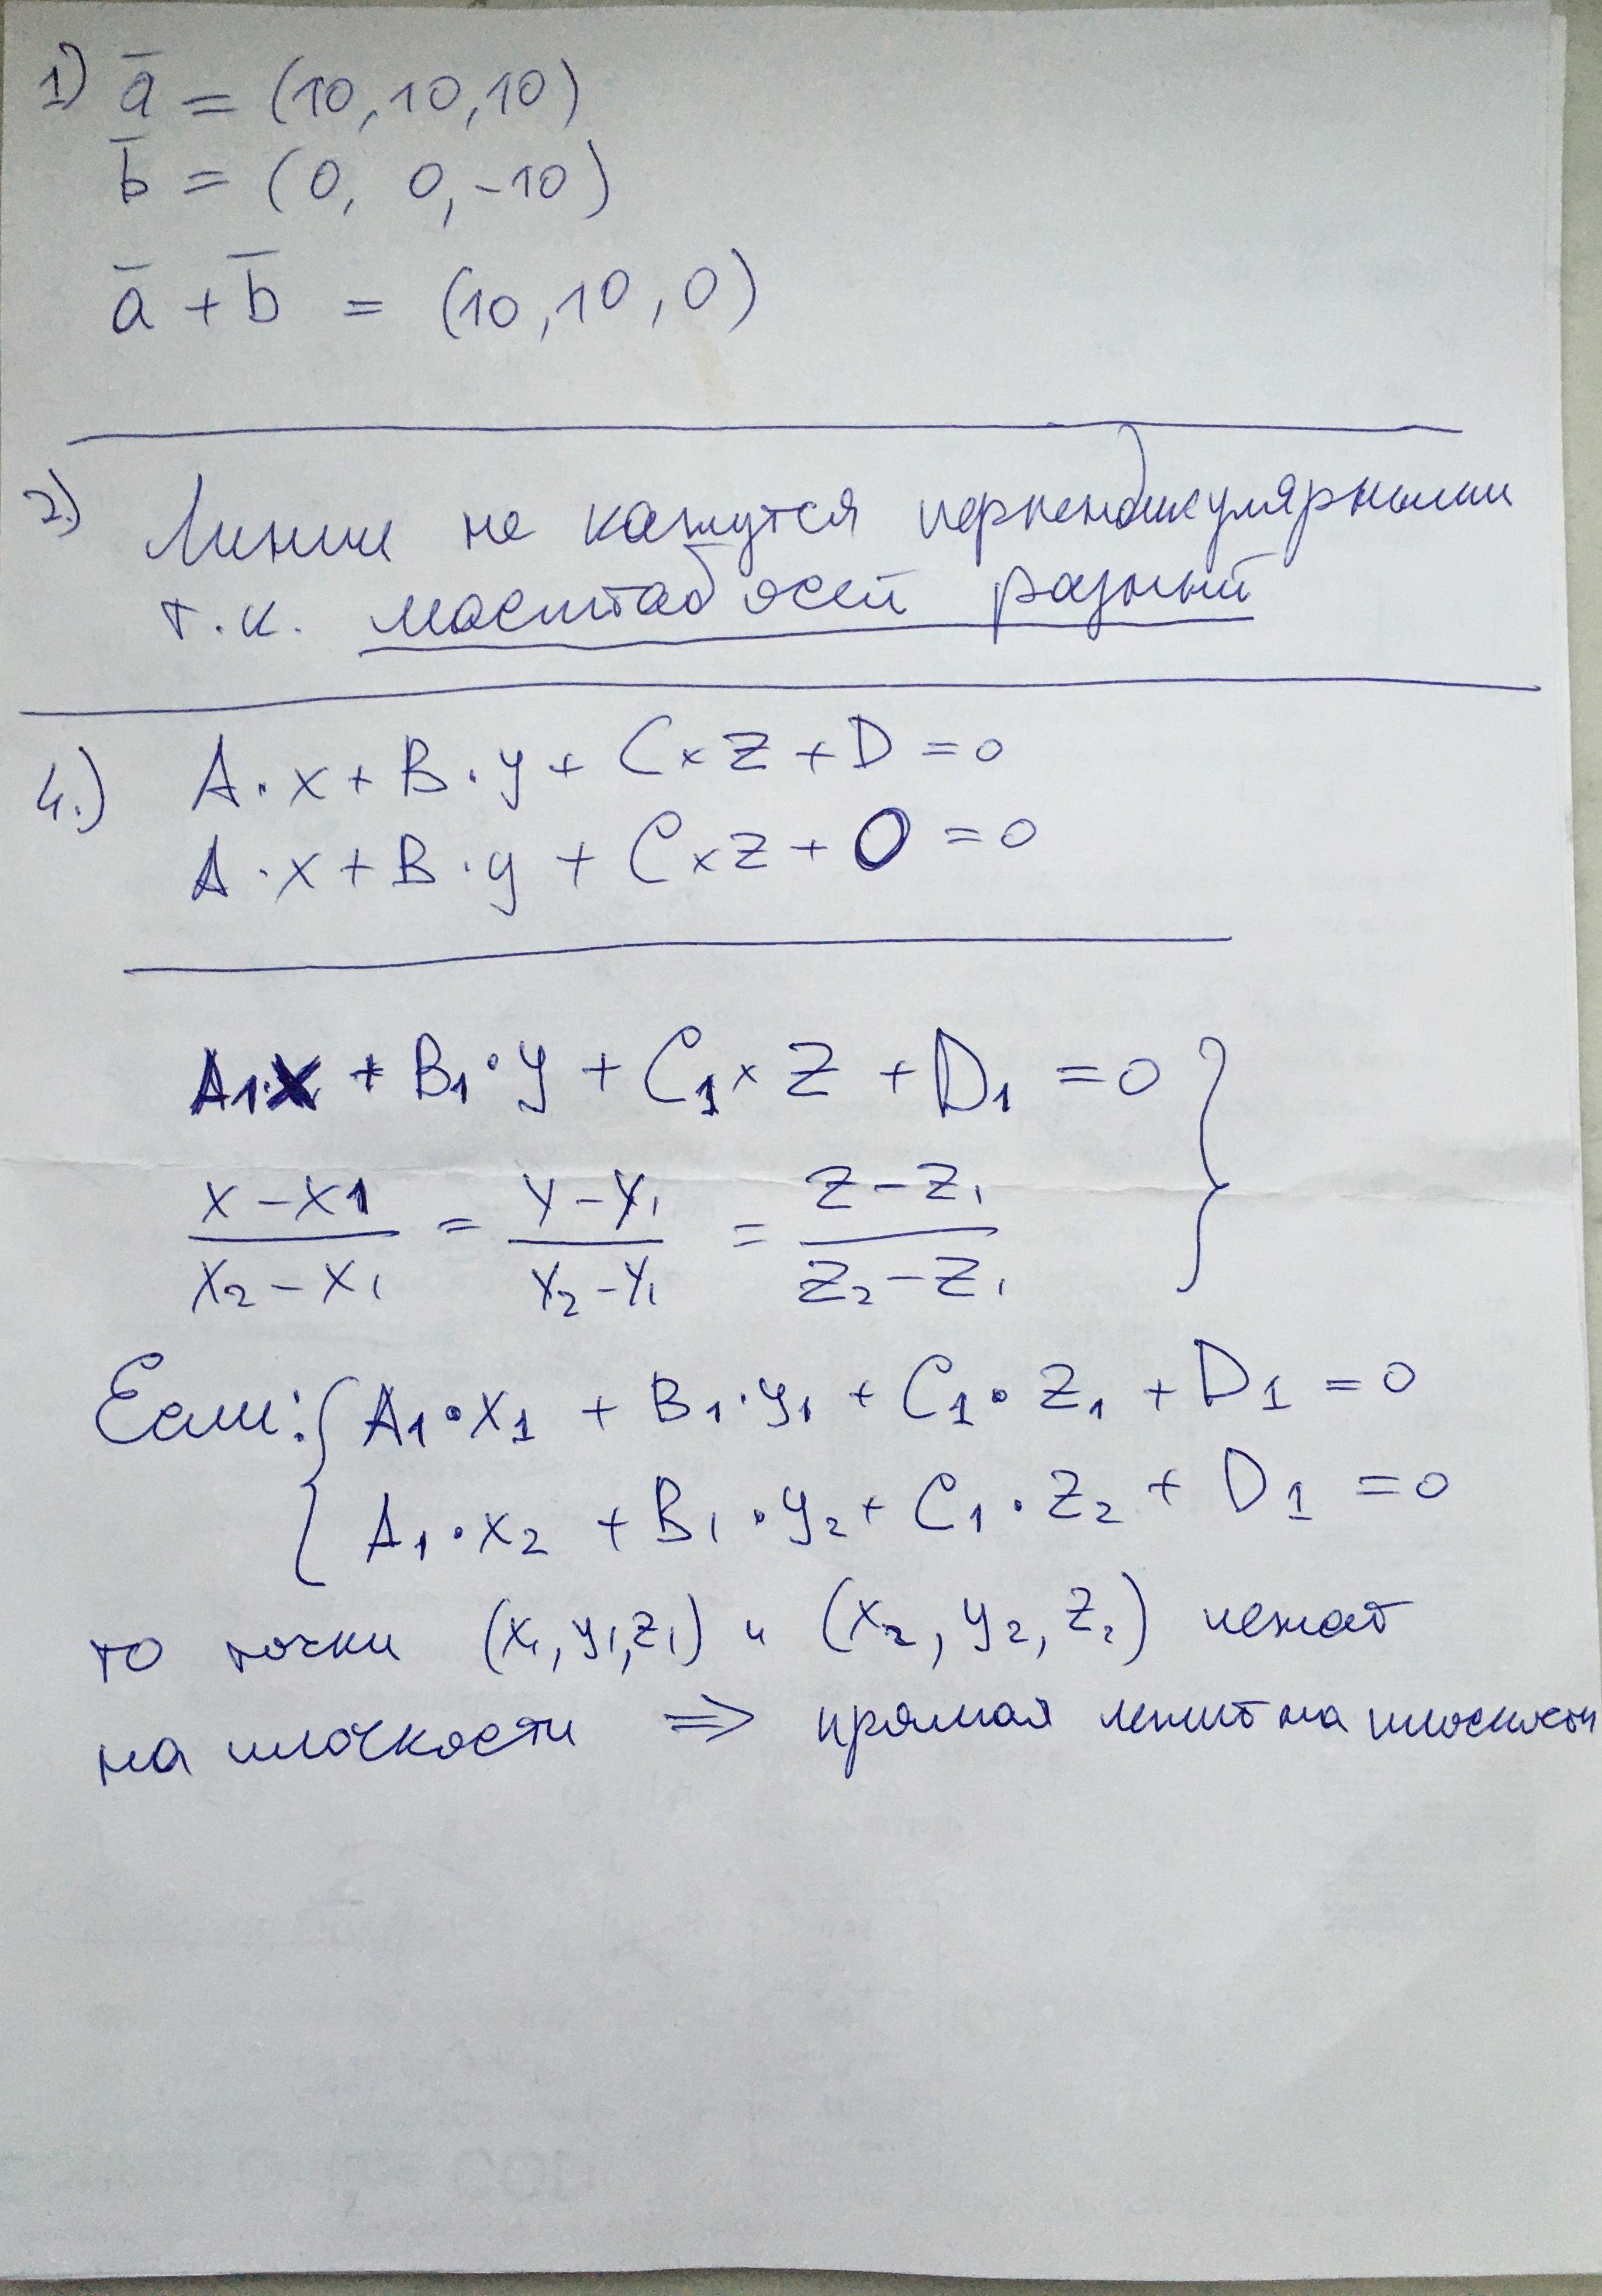 1) a̅ = (10, 10, 10)
b̅ = (0, 0, -10)
a̅ + b̅ = (10, 10, 0)
2.) Линии не кажутся перпендикулярными
т.к. масштаб осей разный
4.) A·x + B·y + C×Z + D = 0
A·x + B·y + C×Z + 0 = 0
A1·X + B1·y + C1×Z + D1 = 0 }
(x-x1)/(x2-x1) = (y-y1)/(y2-y1) = (z-z1)/(z2-z1)
Если: { A1·x1 + B1·y1 + C1·z1 + D1 = 0
A1·x2 + B1·y2 + C1·z2 + D1 = 0
то точки (x1, y1, z1) и (x2, y2, z2) лежат
на плочкости ⇒ прямая лежит на плоскости